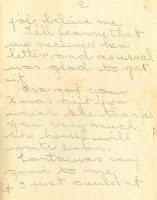 2
job, believe me.
Tell Jeanny that
we recieved her
letter and as usual
was glad to get
it.
Eva got your
Xmas gift for
which she thanks
you very much.
She herself will
write soon.
Santa was very
good to me,
I just couldn't